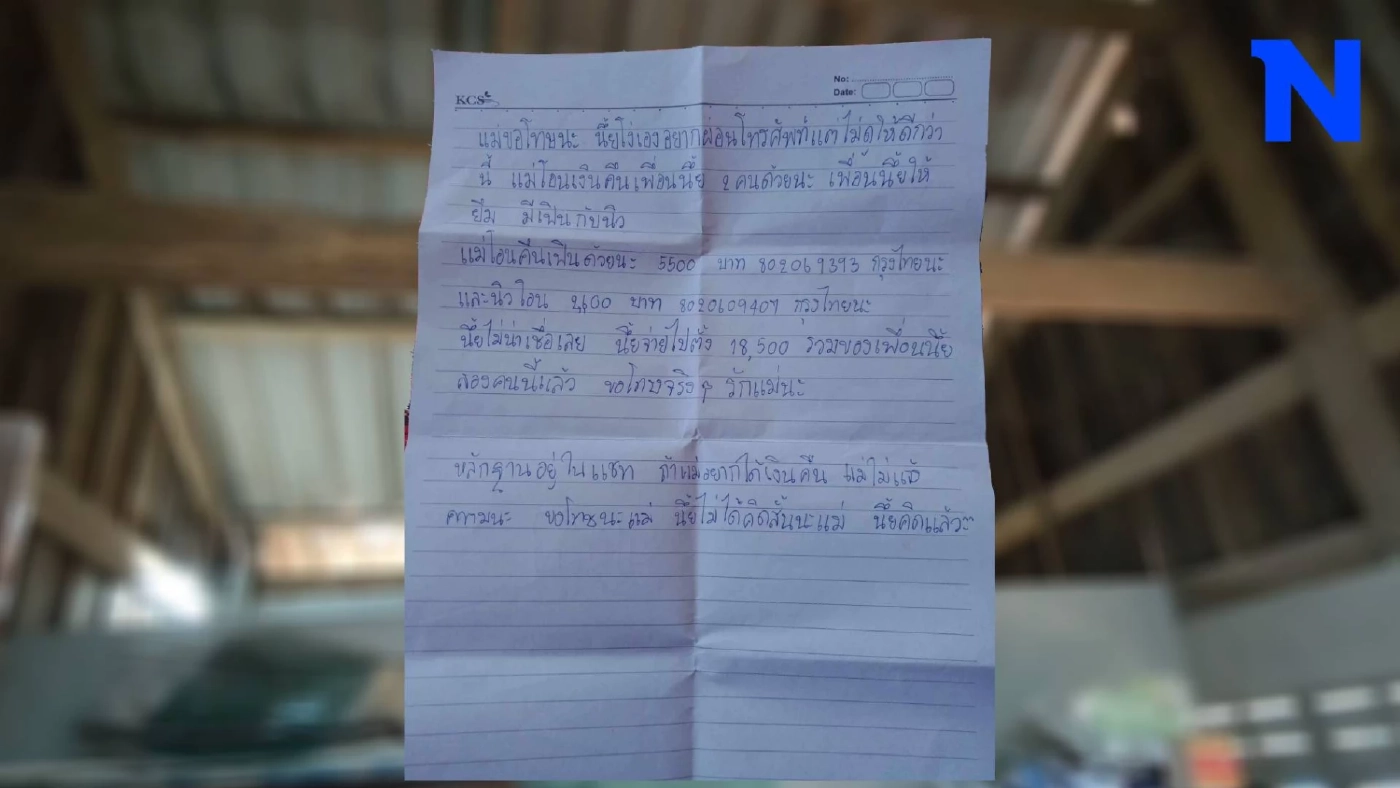 N
No:
Date:
KCS
แม่ขอโทษนะ นี้ยโง่เองอยากผ่อนโทรศัพท์แต่ไม่ดูให้ดีกว่า
นี้ แม่โอนเงินคืนเพื่อนนี้ย 2 คนด้วยนะ เพื่อนนี้ยให้
ยืม มีเฟินกับนิว
แม่โอนคืนเฟินด้วยนะ 5500 บาท 802069393 กรุงไทยนะ
และนิวโอน บาท 8020609407 กรุงไทยนะ
นี้ยไม่น่าเชื่อเลย นี้ยจ่ายไปตั้ง 18,500 รวมของเพื่อนนี้ย
สองคนนี้แล้ว ขอโทษจริงๆ รักแม่นะ
หลักฐานอยู่ในแชท ถ้าแม่อยากได้เงินคืน แม่ไปแจ้
ความนะ ขอโทษนะแม่ นี้ยไม่ได้คิดสั้นนะแม่ นี้ยคิดแล้ว